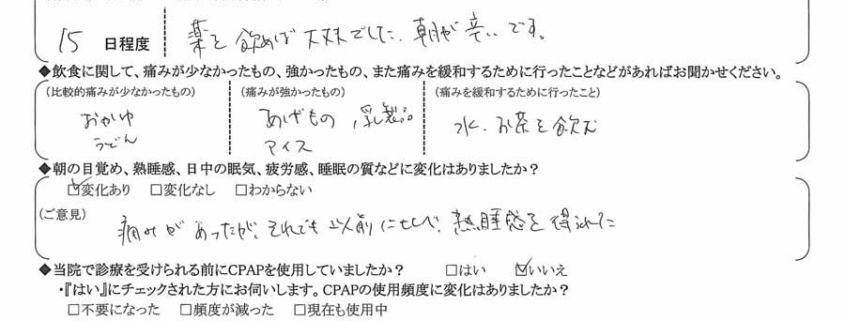 15 日程度 薬を飲めば大丈夫でした。朝が辛いです。
◆飲食に関して、痛みが少なかったもの、強かったもの、また痛みを緩和するために行ったことなどがあればお聞かせください。
(比較的痛みが少なかったもの) (痛みが強かったもの) (痛みを緩和するために行ったこと)
おかゆ あげもの、乳製品 水、お茶を飲む
うどん アイス
◆朝の目覚め、熟睡感、日中の眠気、疲労感、睡眠の質などに変化はありましたか?
☑変化あり □変化なし □わからない
(ご意見)
痛みがあったが、それでも以前に比べ、熟睡感を得られた
◆当院で診療を受けられる前にCPAPを使用していましたか? □はい ☑いいえ
・『はい』にチェックされた方にお伺いします。CPAPの使用頻度に変化はありましたか?
□不要になった □頻度が減った □現在も使用中